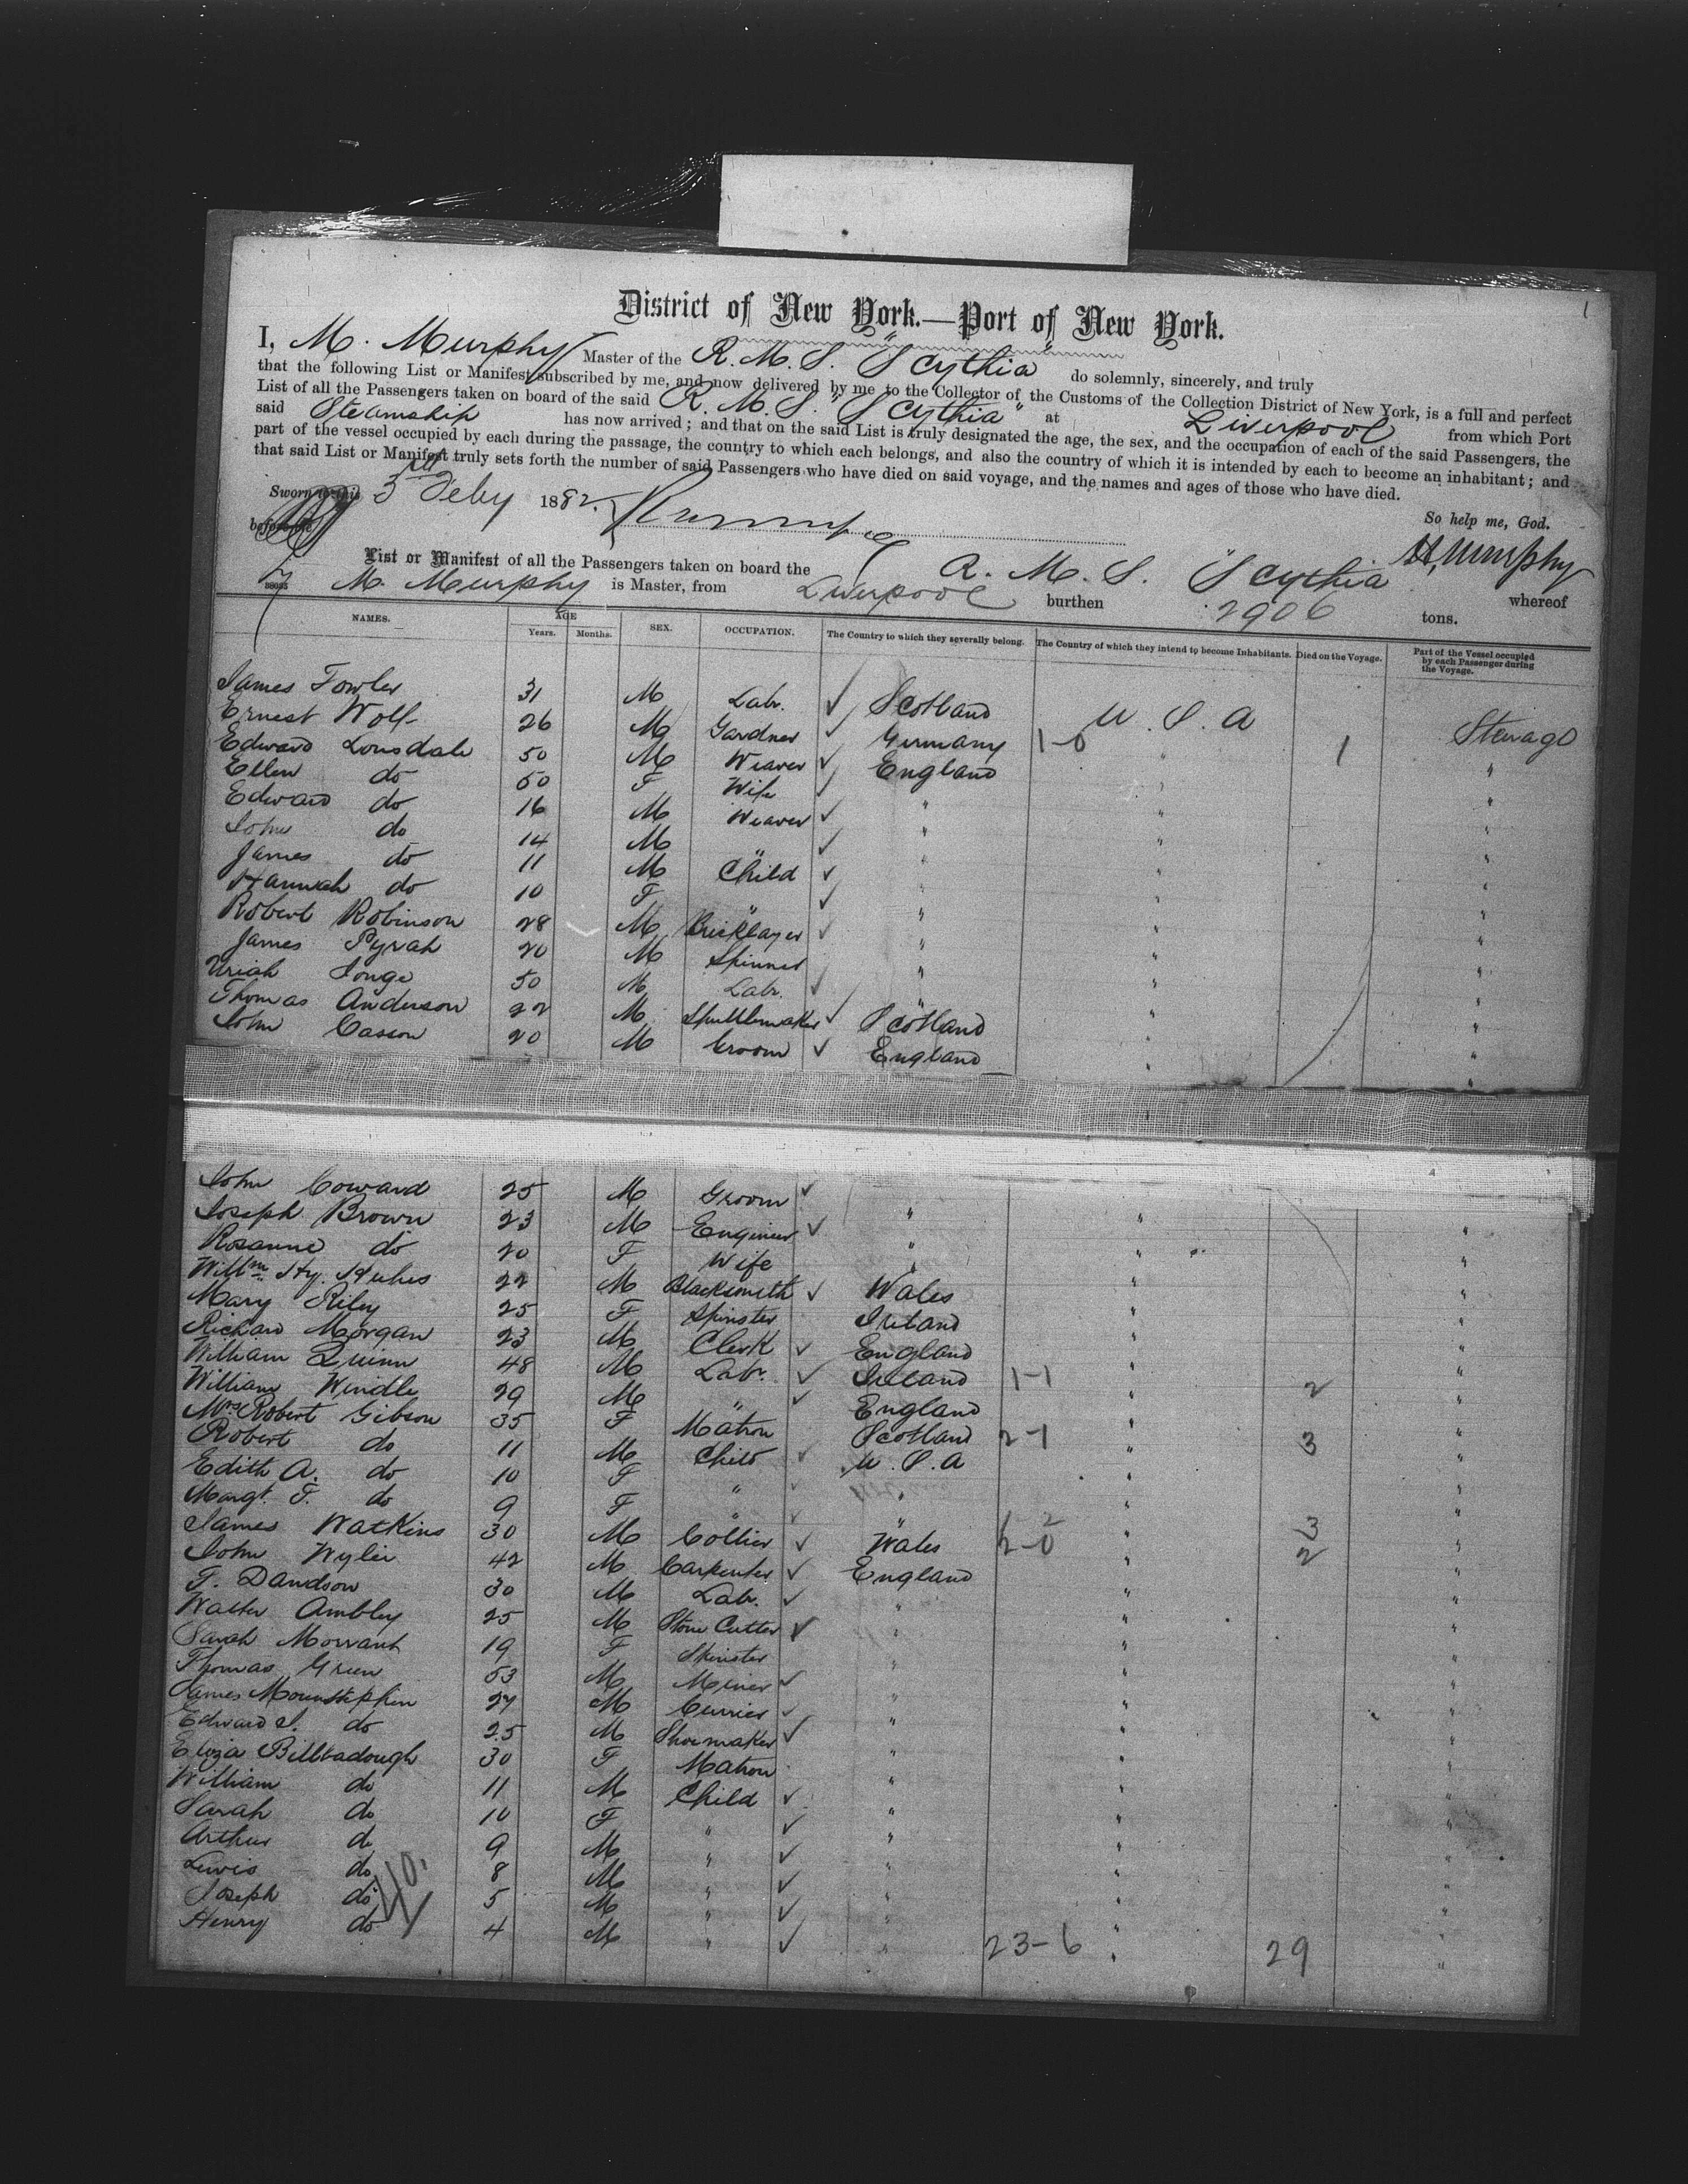 1
District of New York.—Port of New York.
I, M. Murphy Master of the R. M. S. "Scythia" do solemnly, sincerely, and truly
that the following List or Manifest subscribed by me, and now delivered by me to the Collector of the Customs of the Collection District of New York, is a full and perfect
List of all the Passengers taken on board of the said R. M. S. "Scythia" at Liverpool from which Port
said Steamship has now arrived; and that on the said List is truly designated the age, the sex, and the occupation of each of the said Passengers, the
part of the vessel occupied by each during the passage, the country to which each belongs, and also the country of which it is intended by each to become an inhabitant; and
that said List or Manifest truly sets forth the number of said Passengers who have died on said voyage, and the names and ages of those who have died.
So help me, God.
Sworn to this 3 Feby 1882.
before me
M. Murphy
List or Manifest of all the Passengers taken on board the R. M. S. "Scythia whereof
M. Murphy is Master, from Liverpool burthen 2906 tons.
NAMES. AGE Years. Months. SEX. OCCUPATION. The Country to which they severally belong. The Country of which they intend to become Inhabitants. Died on the Voyage. Part of the Vessel occupied by each Passenger during the Voyage.
James Fowler 31 M Labr. Scotland U. S. A Steerage
Ernest Wolf 26 M Gardner Germany 1-0 " 1 "
Edward Lonsdale 50 M Weaver England " "
Ellen do 50 F Wife " " "
Edward do 16 M Weaver " " "
John do 14 M " " " "
James do 11 M Child " " "
Hannah do 10 F " " " "
Robert Robinson 28 M Bricklayer " " "
James Pyrah 20 M Spinner " " "
Uriah Longe 50 M Labr. " " "
Thomas Anderson 22 M Shuttlemaker Scotland " "
John Casson 20 M Groom England " "
John Coward 25 M Groom " " "
Joseph Brown 23 M Engineer " " "
Rosanne do 20 F Wife " "
Willm Hy. 22 M Blacksmith Wales " "
Mary Riley 25 F Spinster Ireland " "
Richard Morgan 23 M Clerk England " "
William Quinn 48 M Labr. Ireland 1-1 " 2 "
William Windle 29 M " England " "
Mrs Robert Gibson 35 F Matron Scotland 2-1 " 3 "
Robert do 11 M Child U. S. A " "
Edith A. do 10 F " " " "
Margt. F. do 9 F " " " "
James Watkins 30 M Collier Wales 2-0 " 2 "
John Wylie 42 M Carpenter England " "
T. Davidson 30 M Labr. " " "
Walter Ambley 25 M Stone Cutter " " "
Sarah Morrant 19 F Spinster " " "
Thomas Green 53 M Miner " " "
James Mounstephen 27 M Currier " " "
Edward J. do 25 M Shoemaker " " "
Eliza 30 F Matron " " "
William do 11 M Child " " "
Sarah do 10 F " " " "
Arthur do 9 M " " " "
Lewis do 8 M " " " "
Joseph do 5 M " " " "
Henry do 4 M " " 23-6 " 29 "
40.